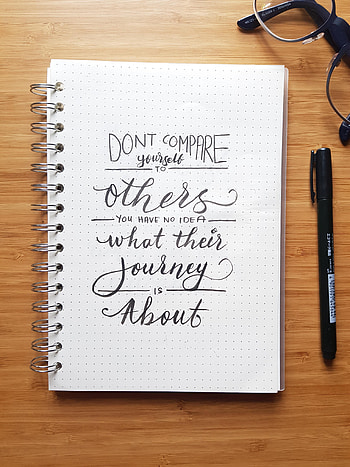 DONT COMPARE
yourself
TO
others
YOU HAVE NO IDEA
what their
Journey
IS
About